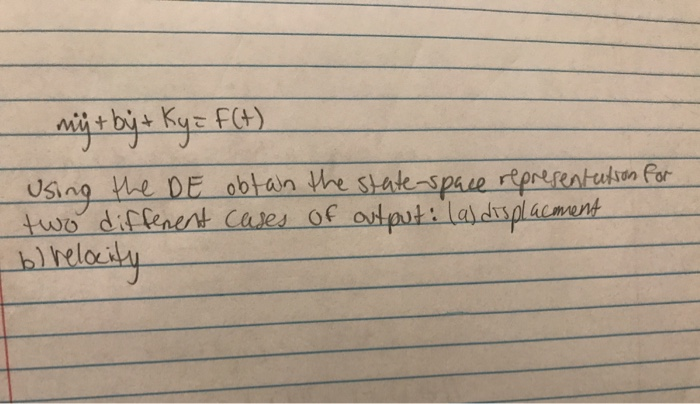 mÿ + bẏ + Ky = F(t)
Using the DE obtain the state-space representation for
two different cases of output: (a) displacment
b) velocity